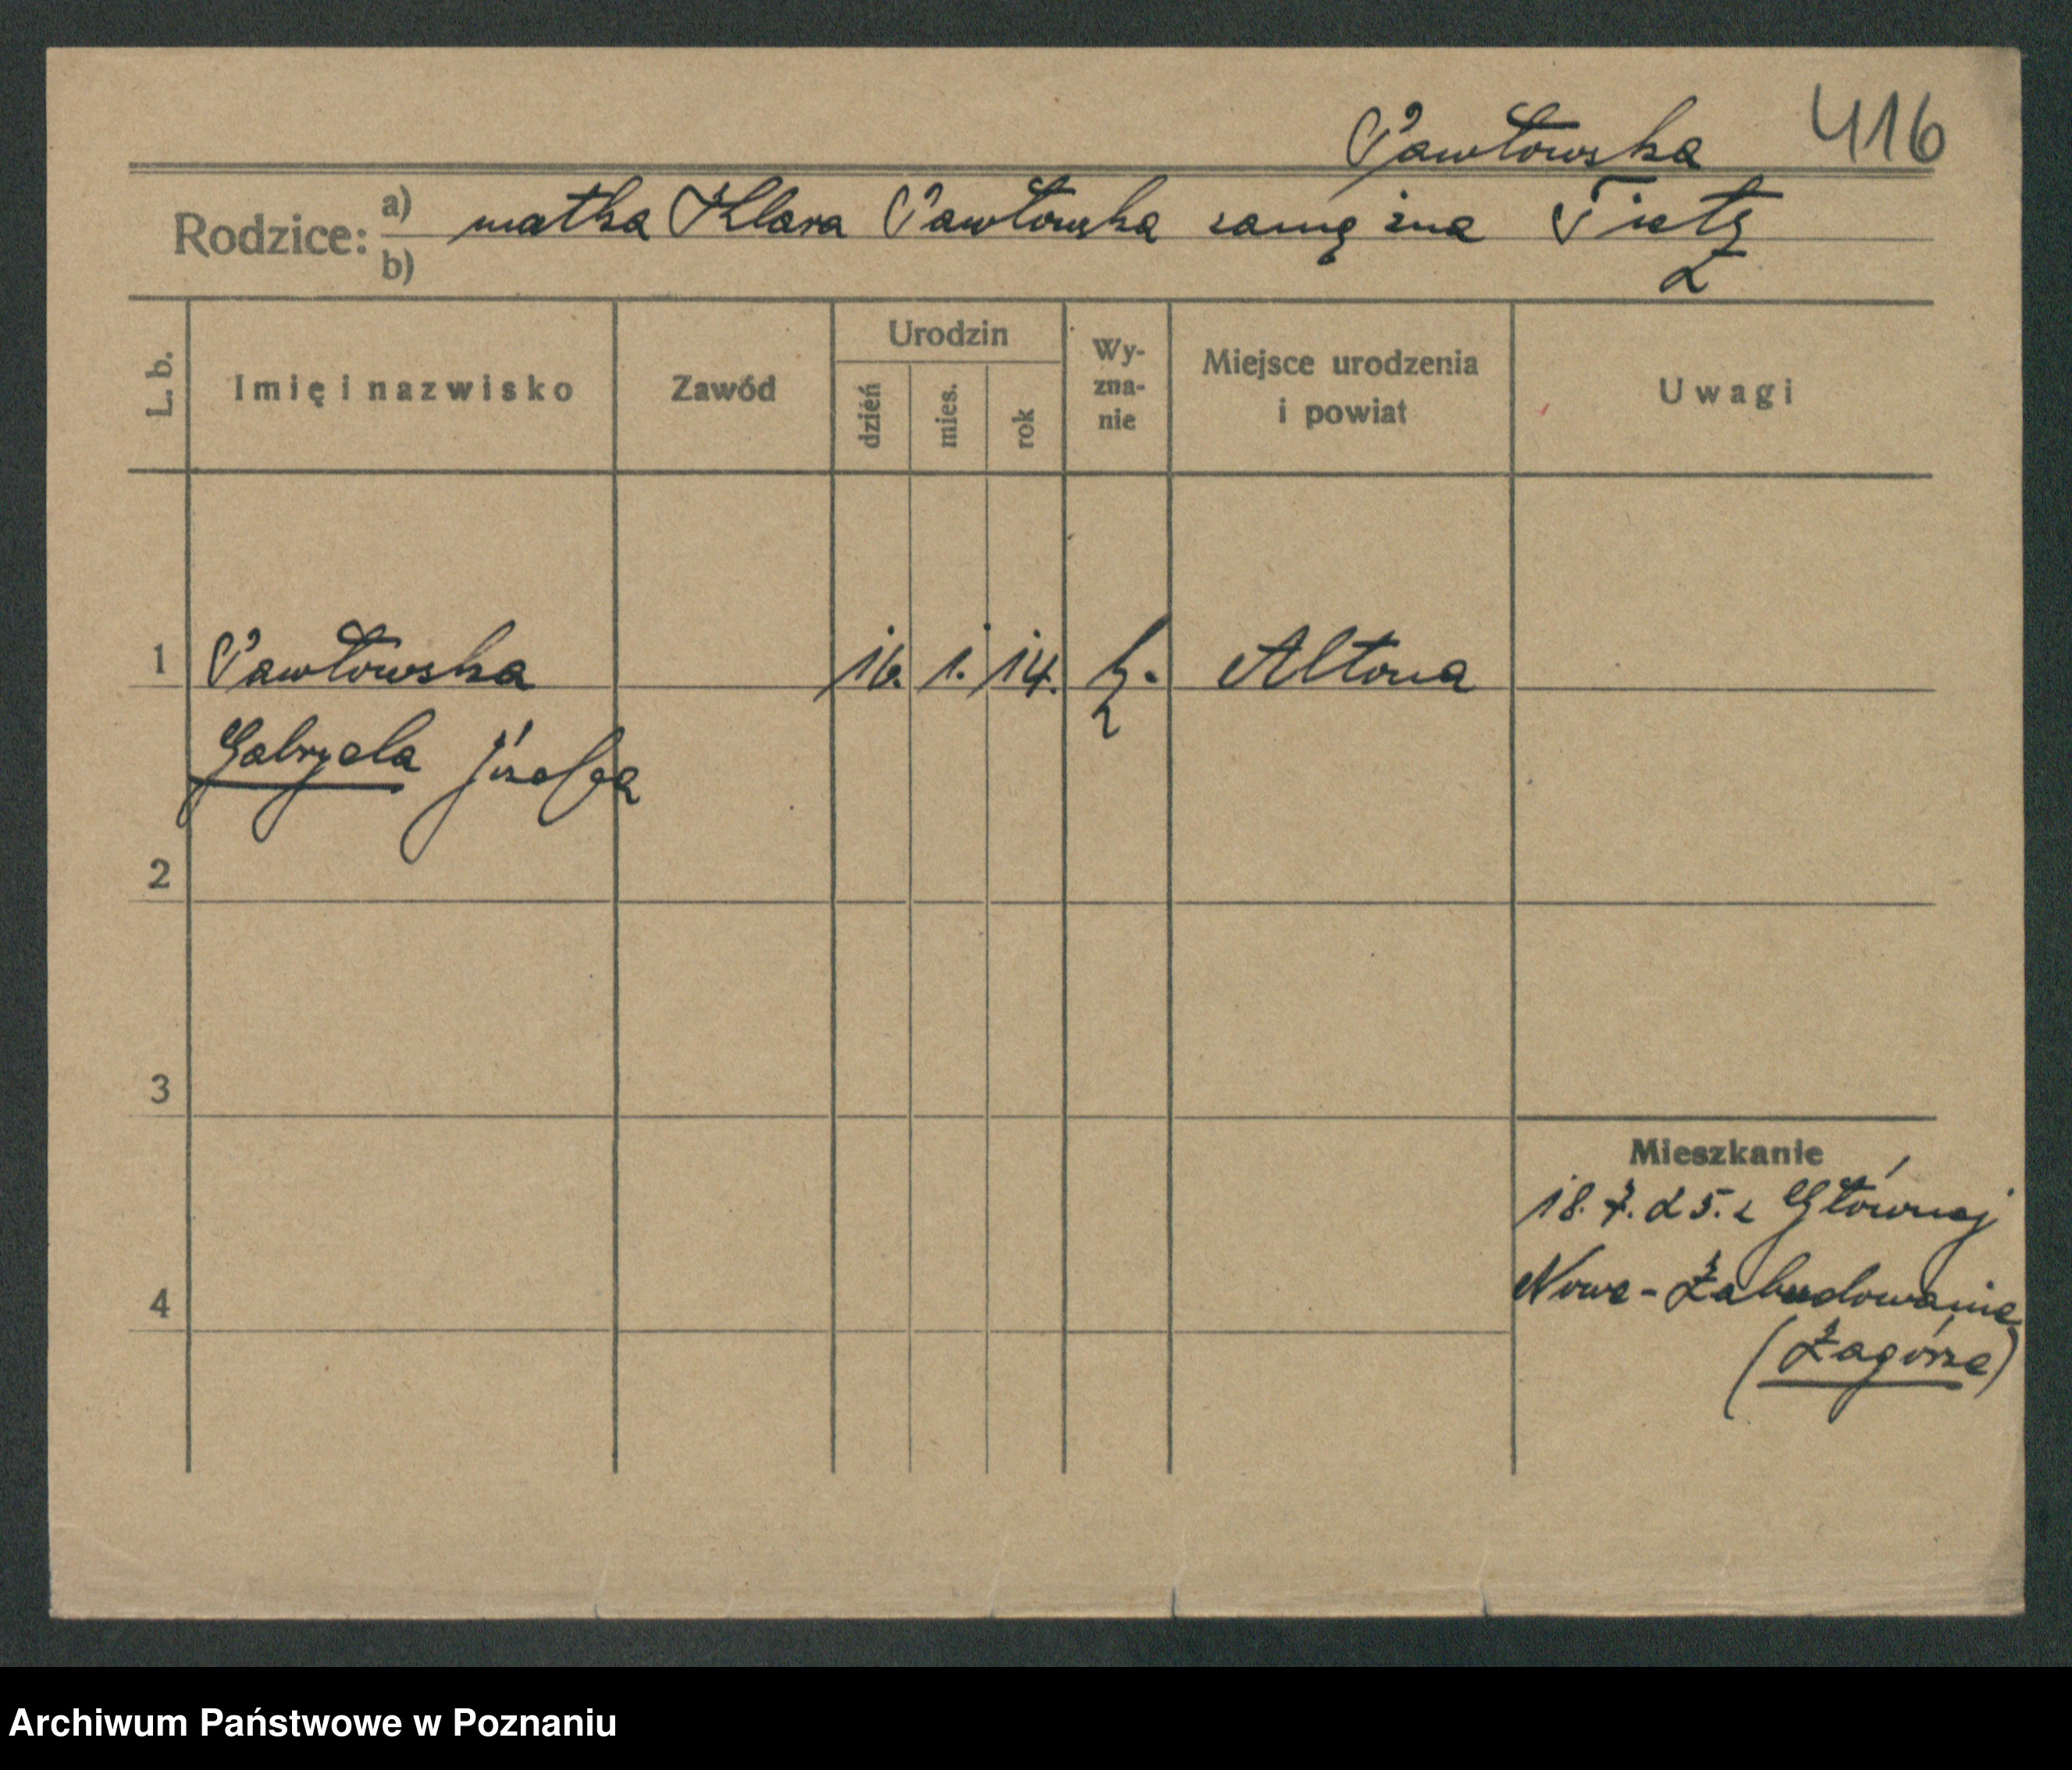 Pawłowska 416
Rodzice: a) matka Klara Pawłowska zamężna Tietz
b)
L. b. Imię i nazwisko Zawód Urodzin dzień mies. rok Wy-zna-nie Miejsce urodzenia i powiat Uwagi
1 Pawłowska 16. 1. 14. k. Altona
Gabryela Józefa
2
3
Mieszkanie
18.7.25. z Głównej
4 Nowe-Zabudowanie
(Zagórze)
Archiwum Państwowe w Poznaniu